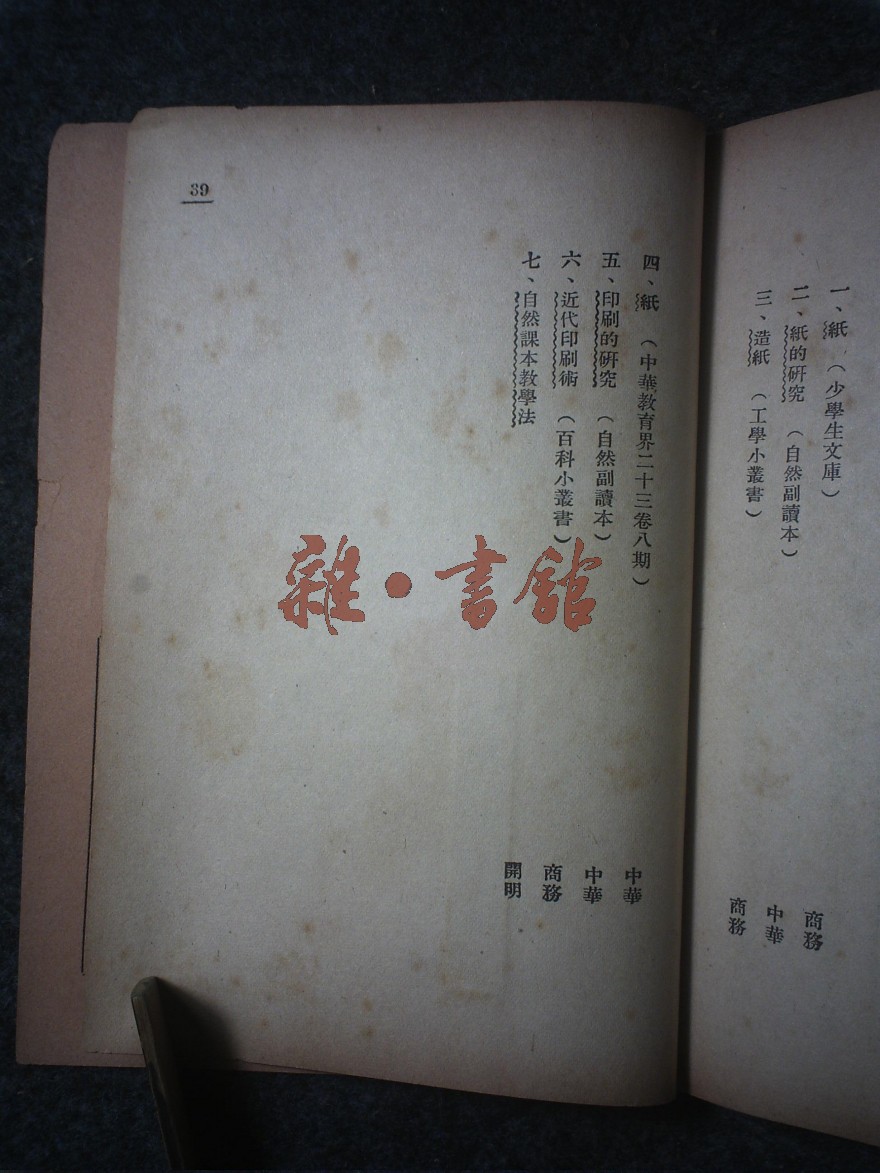 一、紙　（少學生文庫）　商務
二、紙的研究　（自然副讀本）　中華
三、造紙　（工學小叢書）　商務
四、紙　（中華教育界二十三卷八期）　中華
五、印刷的研究　（自然副讀本）　中華
六、近代印刷術　（百科小叢書）　商務
七、自然課本教學法　開明
39
雜·書館